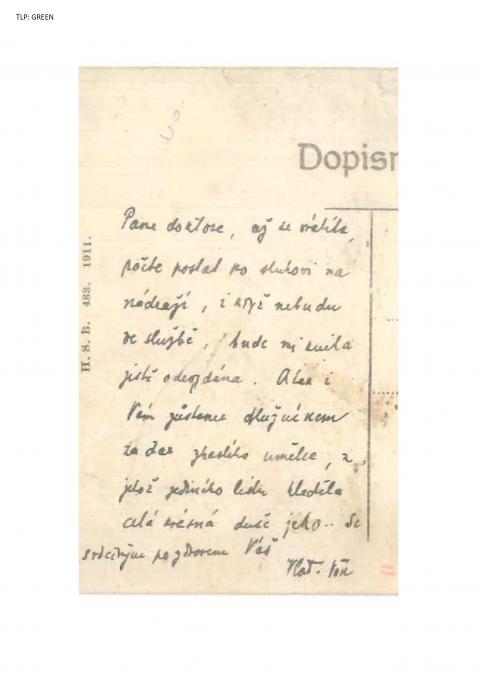 TLP: GREEN
Dopisn
H. S. B. 483. 1911.
Pane doktore, až se vrátíte,
račte poslat po sluhovi na
nádraží, i když nebudu
ve službě, bude mi
jistě odevzdána. Ale i
Vám zůstanu dlužníkem
za dar umělce, z
jehož jediného listu hleděla
celá krásná duše jeho.. Se
srdečným pozdravem Váš
Vlat.